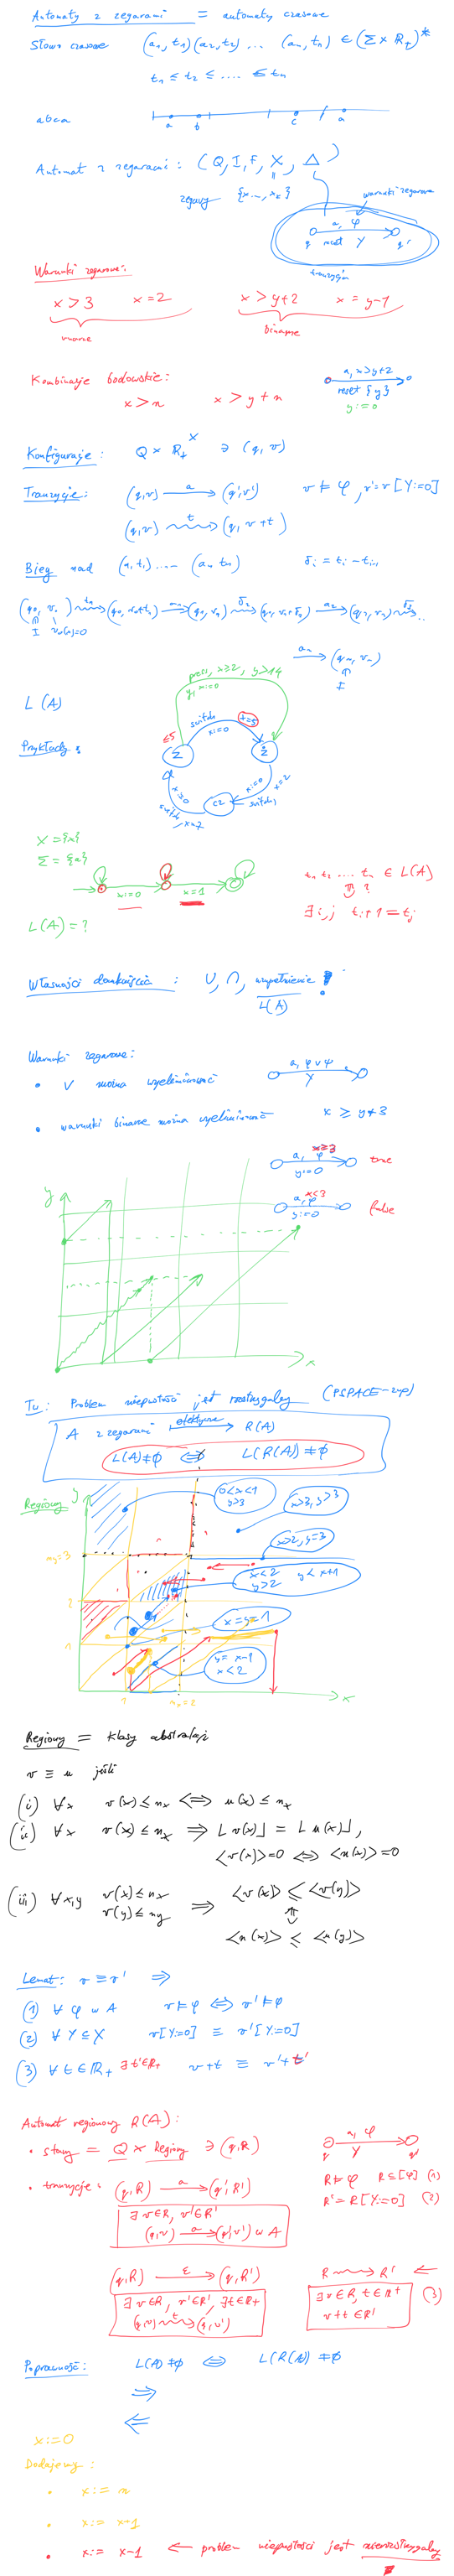 Automaty z zegarami = automaty czasowe
Słowo czasowe (a₁, t₁)(a₂, t₂) ... (aₙ, tₙ) ∈ (Σ × R₊)*
t₁ ≤ t₂ ≤ .... ≤ tₙ
abca
a b c a
Automat z zegarami: (Q, I, F, X, Δ)
zegary {x₁..., xₖ}
warunki zegarowe
a, φ
q reset Y q'
tranzycja
Warunki zegarowe:
x > 3 x = 2 x > y+2 x = y-1
unarne binarne
Kombinacje boolowskie:
x > n x > y + n
a, x > y+2
reset {y}
y := 0
Konfiguracje: Q × R₊ˣ ∋ (q, v)
Tranzycje: (q,v) →a (q',v') v ⊨ φ, v' = v[Y:=0]
(q,v) ⇝t (q, v+t)
Bieg nad (a₁ t₁) .... (aₙ tₙ) δᵢ = tᵢ - tᵢ₋₁
I v₀(x)=0
L(A)
press, x≥2, y>14
y, x:=0
switch
x:=0
x=5
≤5
Z
Ż
Cz
x:=0
x=2
switch
Przykłady:
X = {x}
Σ = {a}
x:=0 x=1
L(A) = ?
t₁ t₂ .... tₙ ∈ L(A)
⇕ ?
∃ i,j tᵢ+1 = tⱼ
Własności domknięcia: ∪, ∩, uzupełnienie !
L(A)
Warunki zegarowe:
• ∨ można wyeliminować a, φ ∨ ψ
Y
• warunki binarne można wyeliminować x ≥ y+3
a, φ x≥3
y:=0 true
a, φ x<3
y:=0 false
y
x
Tw: Problem niepustości jest rozstrzygalny (PSPACE-zup)
A z zegarami efektywnie → R(A)
L(A) ≠ ∅ ⇔ L(R(A)) ≠ ∅
Regiony y
0<x<1
y>3
x>3, y>3
n_y=3
x>2, y=3
x<2 y<x+1
y>2
2
x=y=1
1
y=x-1
x<2
1 nₓ=2 x
Regiony = klasy abstrakcji
v ≡ u jeśli
(i) ∀x v(x) ≤ nₓ ⇔ u(x) ≤ nₓ
(ii) ∀x v(x) ≤ nₓ ⇒ ⌊v(x)⌋ = ⌊u(x)⌋,
<v(x)>=0 ⇔ <u(x)>=0
(iii) ∀x,y v(x) ≤ nₓ
v(y) ≤ n_y ⇒ <v(x)> ≤ <v(y)>
⇕
<u(x)> ≤ <u(y)>
Lemat: v ≡ v' ⇒
(1) ∀ φ w A v ⊨ φ ⇔ v' ⊨ φ
(2) ∀ Y ⊆ X v[Y:=0] ≡ v'[Y:=0]
(3) ∀ t ∈ R₊ ∃ t' ∈ R₊ v+t ≡ v'+t'
Automat regionowy R(A):
• stany = Q × Regiony ∋ (q,R)
a, φ
q Y q'
• tranzycje: (q,R) →a (q',R')
R ⊨ φ R ⊆ [φ] (1)
R' = R[Y:=0] (2)
∃ v∈R, v'∈R'
(q,v) →a (q',v') w A
(q,R) →ε (q,R') R ⇝ R' ←
∃ v∈R, v'∈R', ∃t∈R₊
(q,v) ⇝t (q,v')
∃ v∈R, t∈R⁺
v+t ∈ R' (3)
Poprawność: L(A) ≠ ∅ ⇔ L(R(A)) ≠ ∅
⇒
⇐
x := 0
Dodajemy:
• x := n
• x := x+1
• x := x-1 ← problem niepustości jest nierozstrzygalny